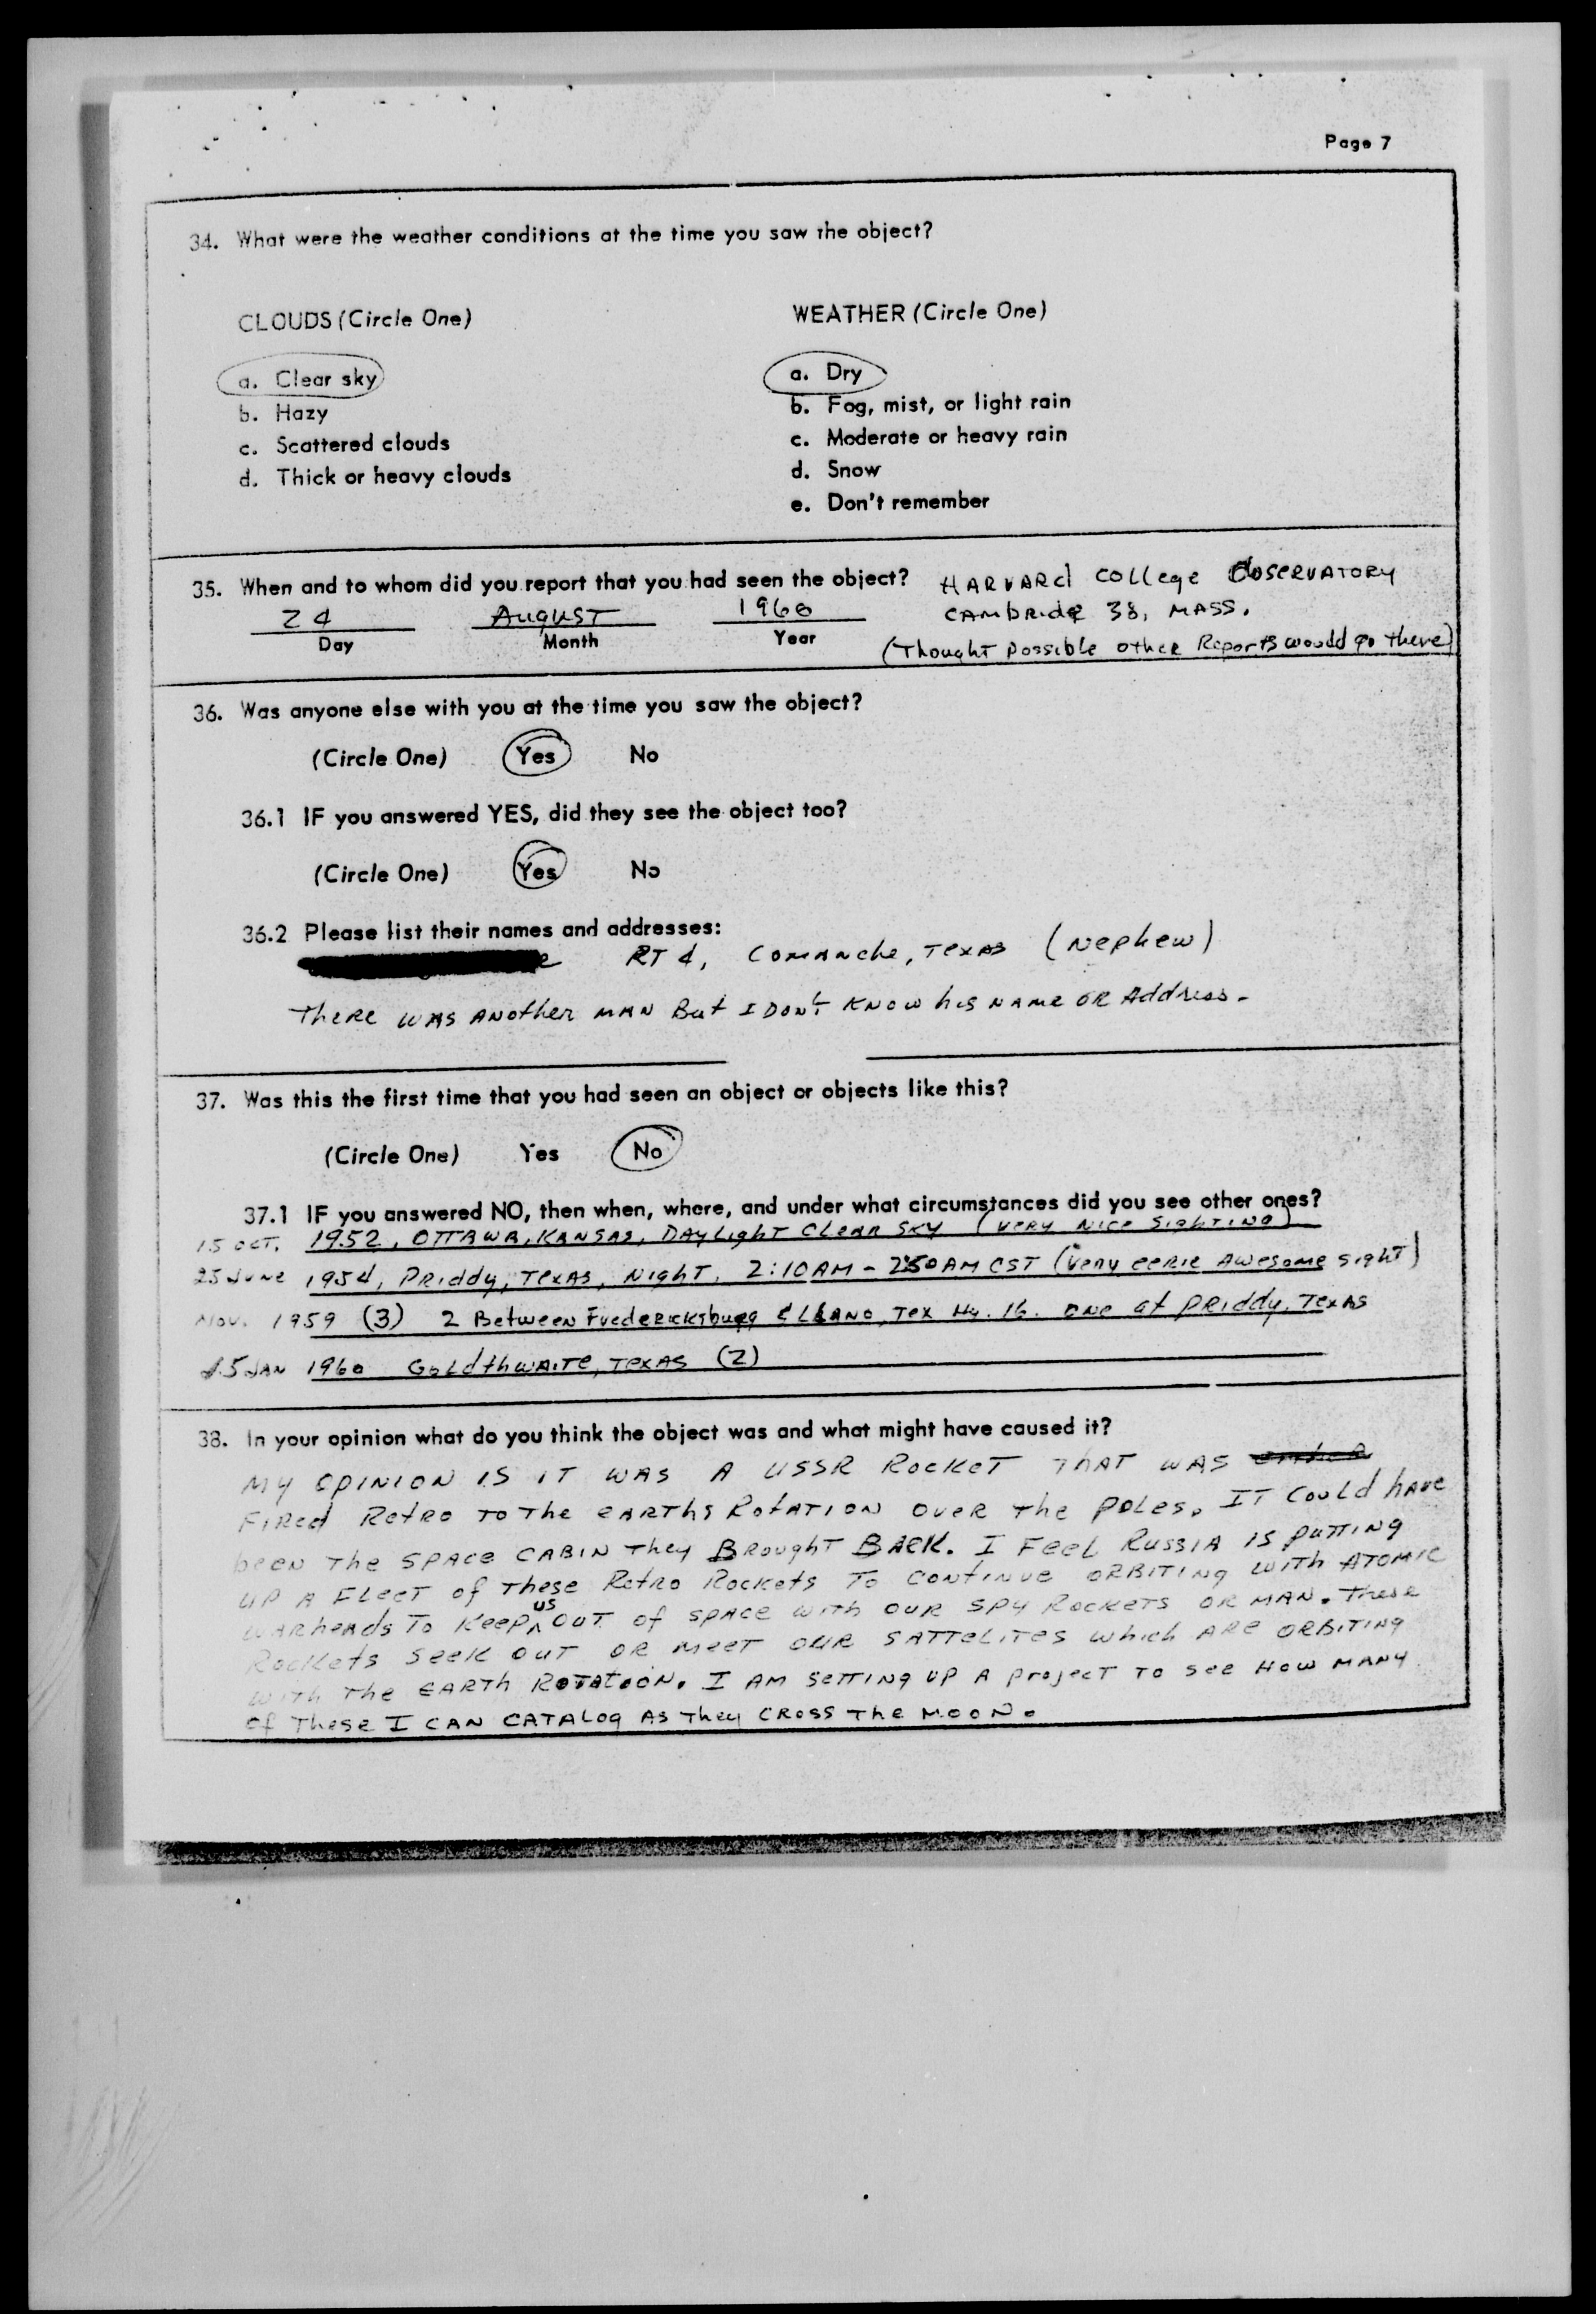 Page 7
34. What were the weather conditions at the time you saw the object?
CLOUDS (Circle One)
WEATHER (Circle One)
a. Clear sky
b. Hazy
c. Scattered clouds
d. Thick or heavy clouds
a. Dry
b. Fog, mist, or light rain
c. Moderate or heavy rain
d. Snow
e. Don't remember
35. When and to whom did you report that you had seen the object?
HARVARd COLLege OBSERVATORY
24 AUGUST 1960
CAMbRidge 38, MASS.
Day Month Year
(Thought Possible other Reports would go there)
36. Was anyone else with you at the time you saw the object?
(Circle One) Yes No
36.1 IF you answered YES, did they see the object too?
(Circle One) Yes No
36.2 Please list their names and addresses:
RT 4, Comanche, TEXAS (Nephew)
There WAS ANother MAN But I DON't KNOW his NAME OR Address.
37. Was this the first time that you had seen an object or objects like this?
(Circle One) Yes No
37.1 IF you answered NO, then when, where, and under what circumstances did you see other ones?
15 OCT. 1952, OTTAWA, KANSAS, DAYLIGHT CLEAR SKY (VERY NICE SIGHTING)
25 JUNE 1954, PRiddy, TEXAS, NIGHT, 2:10 AM - 2:50 AM CST (very eerie Awesome SIGHT)
Nov. 1959 (3) 2 Between Fredericksburg & LLANO, Tex Hy. 16. one at PRiddy, Texas
15 JAN 1960 GoLdthwAITE, TEXAS (2)
38. In your opinion what do you think the object was and what might have caused it?
MY OPINION IS IT WAS A USSR ROCKET THAT WAS
FIRed Retro TO The EARTHS RotATION OVER The POLes. IT Could have
been The SPACE CABIN They BROUGHT BACK. I FeeL RUSSIA IS PUTTING
UP A FLEET of These Retro Rockets To CONTINUE ORBITING WITH ATOMIC
WARheads To Keep us OUT of SPACE WITH OUR SPY ROCKETS OR MAN. These
Rockets Seek OUT OR MEET OUR SATTELITES which ARE ORBITING
WITH The EARTH ROTATION. I AM SETTING UP A PROJECT TO SEE HOW MANY
of These I CAN CATALOG AS They CROSS The MOON.